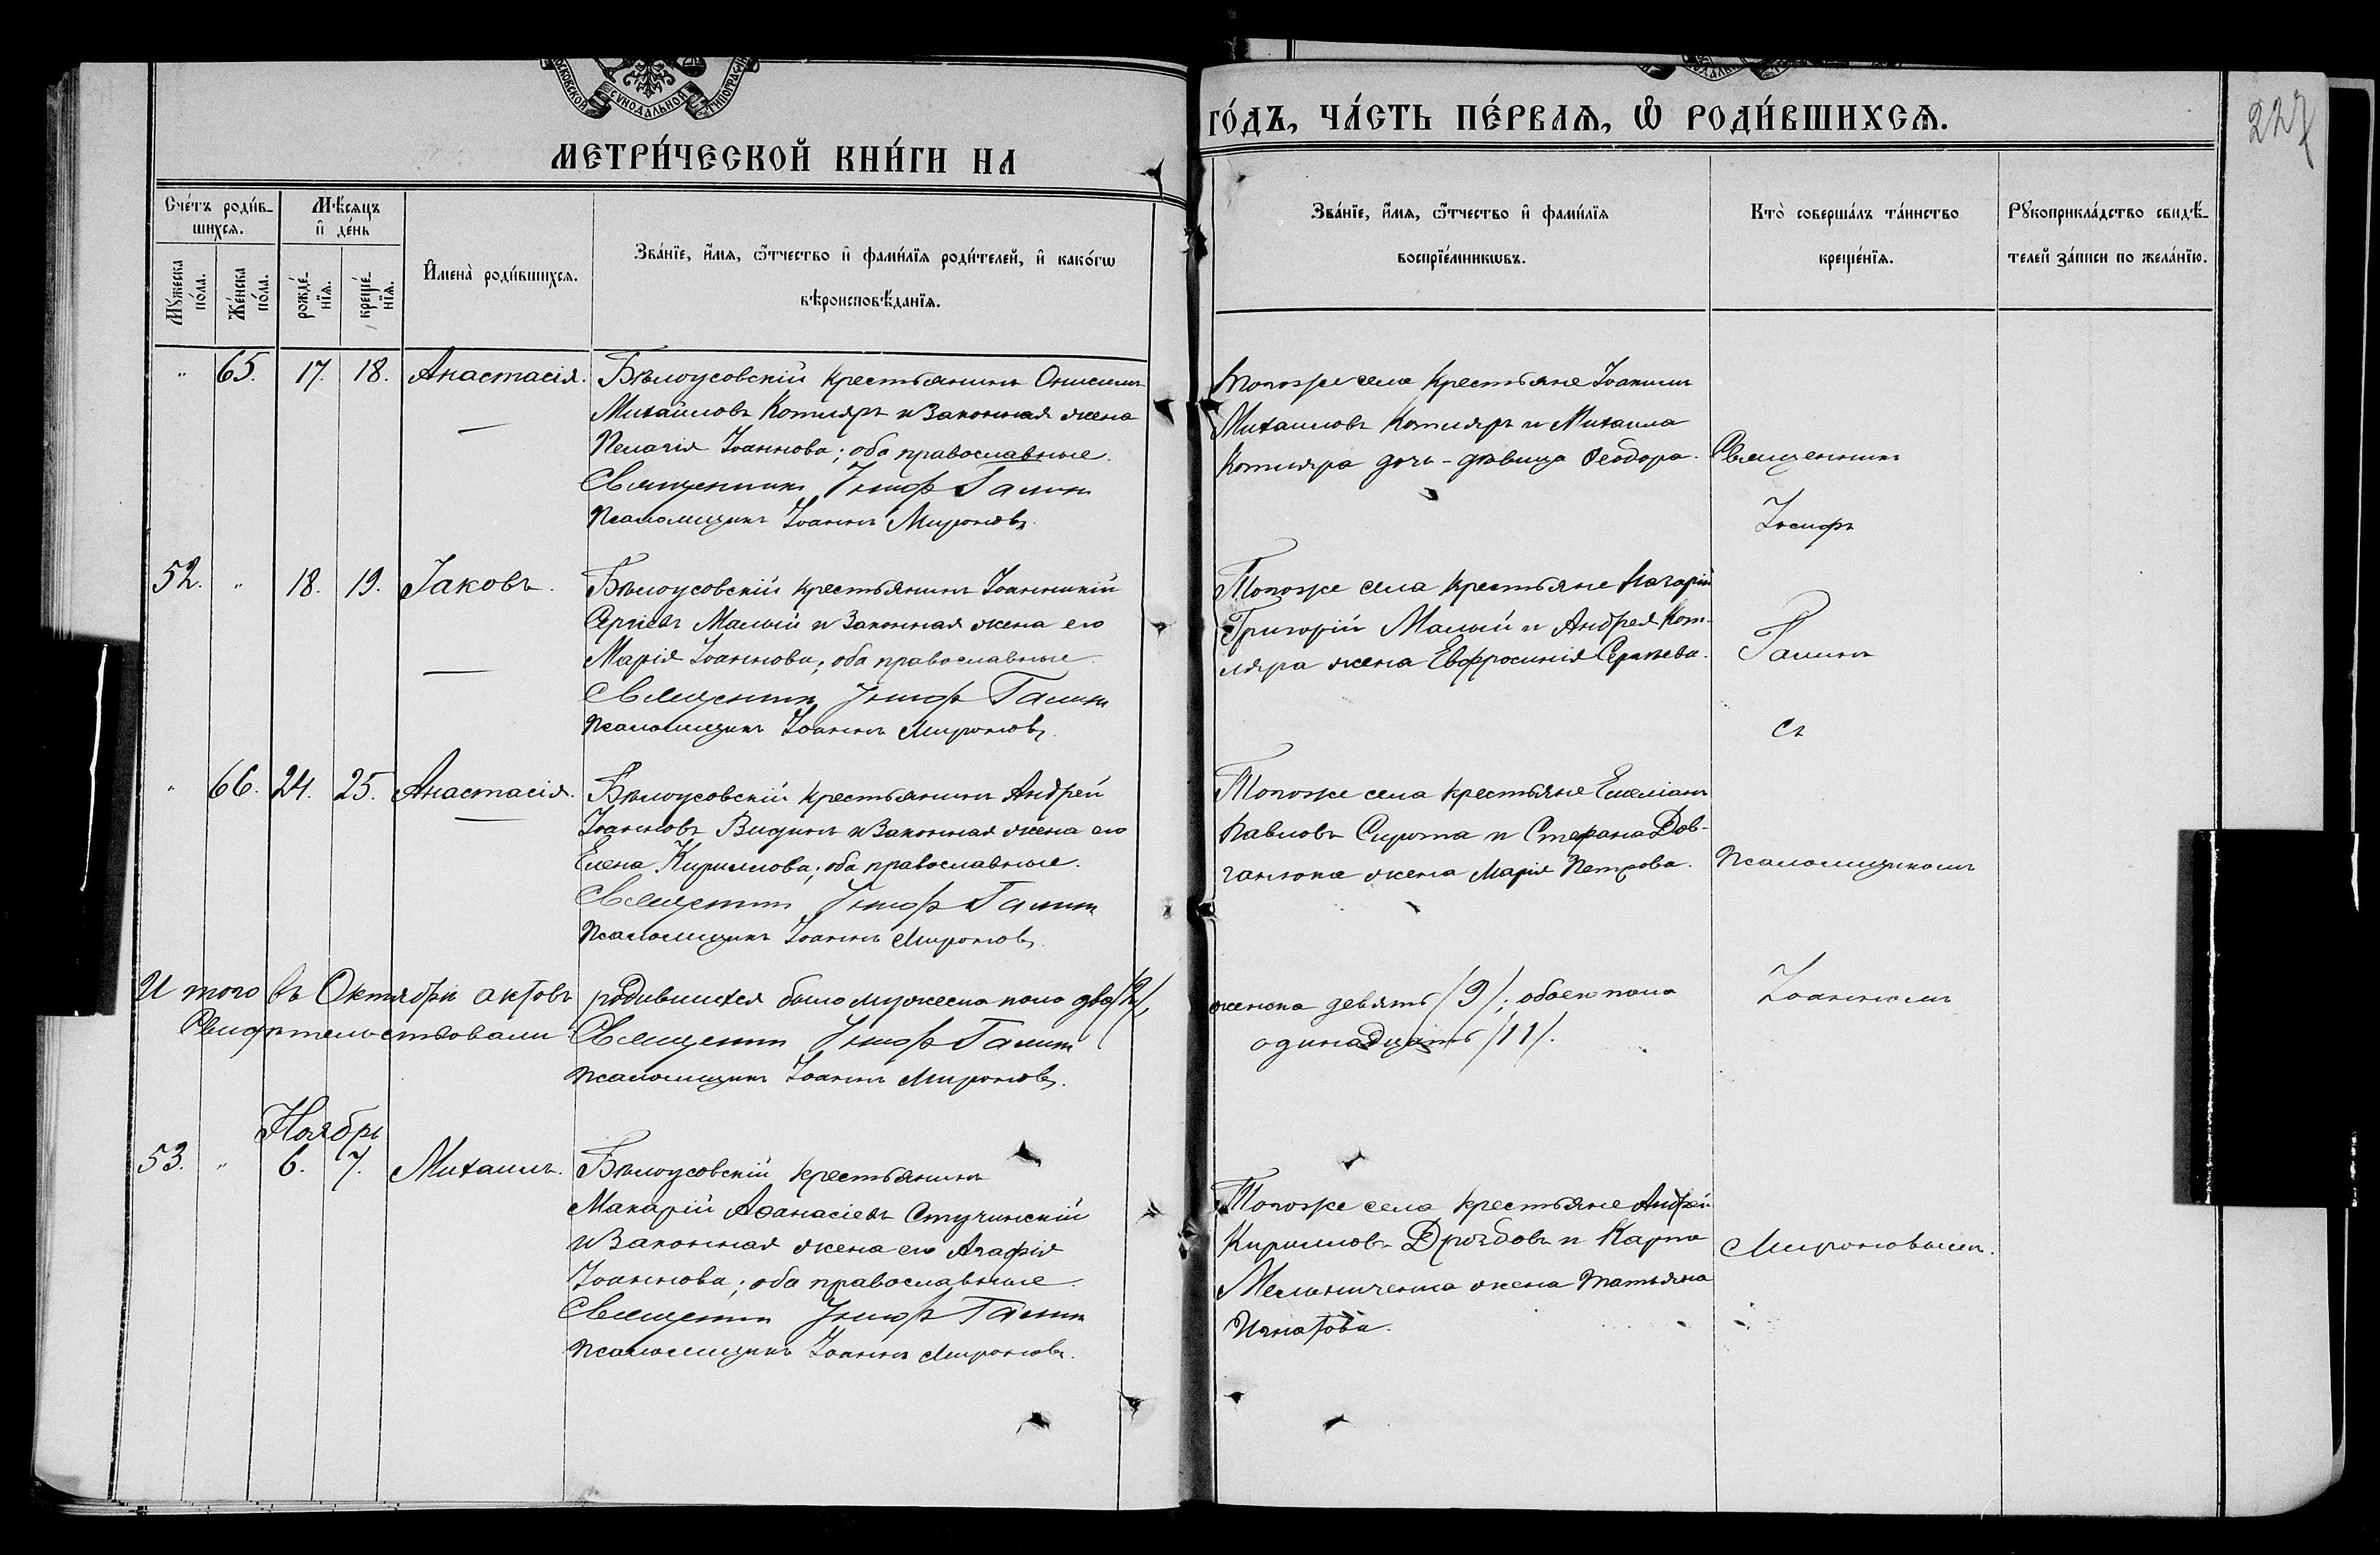 МОСКОВСКОЙ СУНОДАЛЬНОЙ ТИПОГРАФІИ
МЕТРИ́ЧЕСКОЙ КНИ́ГИ НА
ГО́ДЪ, ЧА́СТЬ ПЕ́РВАѦ, Ѡ҆ РОДИ́ВШИХСѦ.
227
Сче́тъ роди́в-
шихсѧ.
Мꙋ́жеска по́ла.
Же́нска по́ла.
Мѣ́сѧцъ
и҆ де́нь
рожде́-
нїѧ.
креще́-
нїѧ.
И҆мена̀ роди́вшихсѧ.
Зва́нїе, и҆́мѧ, ѻ҆́тчество и҆ фами́лїѧ роди́телей, и҆ како́гѡ
вѣроисповѣ́данїѧ.
Зва́нїе, и҆́мѧ, ѻ҆́тчество и҆ фами́лїѧ
воспрїе́мникѡвъ.
Кто̀ соверша́лъ та́инство
креще́нїѧ.
Рꙋкоприкла́дство свидѣ́-
телей за́писи по жела́нїю.
" 65. 17. 18. Анастасія. Бѣлоусовскій крестьянинъ Онисимъ
Михайловъ Котляръ и законная жена
Пелагія Іоаннова; оба православные.
Священникъ Іосифъ Галинъ
Псаломщикъ Іоаннъ Мироновъ.
Тогоже села крестьяне Іоакимъ
Михаиловъ Котляръ и Михаила
Котляра дочь-дѣвица Ѳеодора.
Священникъ
Іосифъ
52. " 18. 19. Іаковъ. Бѣлоусовскій крестьянинъ Іоанникій
Сергіевъ Малый и законная жена его
Марія Іоаннова; оба православные.
Священникъ Іосифъ Галинъ
Псаломщикъ Іоаннъ Мироновъ.
Тогоже села крестьяне
Григорій Малый и Андрея Кот-
ляра жена Евфросинія Сергіева.
Галинъ
съ
" 66. 24. 25. Анастасія. Бѣлоусовскій крестьянинъ Андрей
Іоанновъ и законная жена его
Елена Кириллова; оба православные.
Священникъ Іосифъ Галинъ
Псаломщикъ Іоаннъ Мироновъ.
Тогоже села крестьяне Емеліанъ
Павловъ Сирота и Стефана Дов-
ганюка жена Марія Петрова.
Псаломщикомъ
Итого въ Октябрѣ актовъ родившихся было мужеска пола два /2/,
женска девять /9/; обоего пола
одинадцать /11/.
Свидѣтельствовали Священникъ Іосифъ Галинъ
Псаломщикъ Іоаннъ Мироновъ.
Іоанномъ
Ноябрь
53. " 6. 7. Михаилъ. Бѣлоусовскій крестьянинъ
Макарій Аѳанасіевъ Стучинскій
и законная жена его Агафія
Іоаннова; оба православные.
Священникъ Іосифъ Галинъ
Псаломщикъ Іоаннъ Мироновъ.
Тогоже села крестьяне Андрей
Кирилловъ Дроздовъ и Карпа
Мельниченка жена Татьяна
Игнатова.
Мироновымъ.